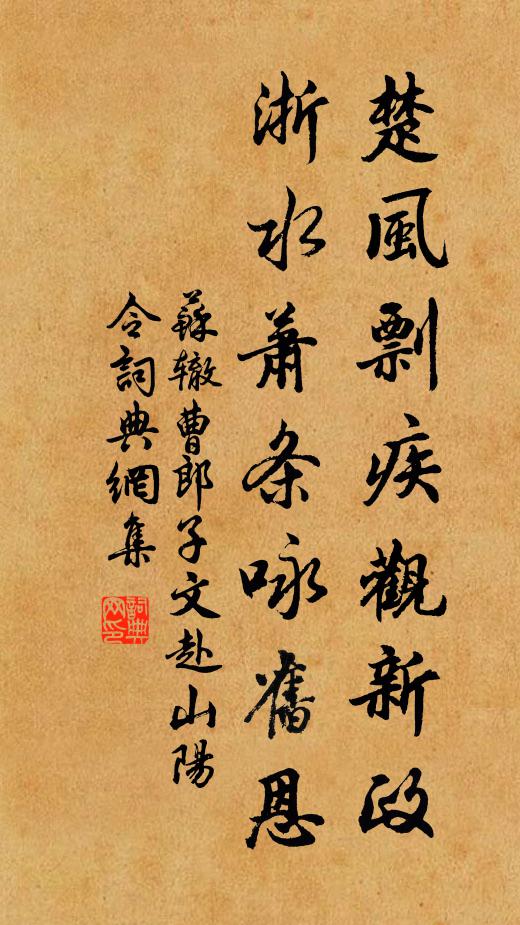 楚風剽疾觀新政
淅水蕭条咏舊恩
蘇辙曹郎子文赴山陽
令詞典網集
詞典
网印